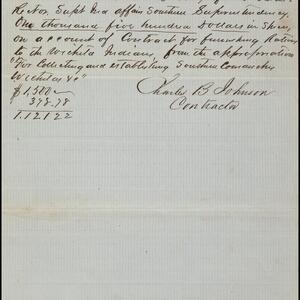 Rector Supt Ind affairs Southern Superintendency,
One thousand five hundred Dollars in Specie,
on account of Contract for furnishing Rations
to the Wichita Indians, from the appropriation
"For Collecting and establishing Southern Comanches
Wichitas &c"
$1,500—
378.78
1,121 22
Charles B Johnson
Contractor